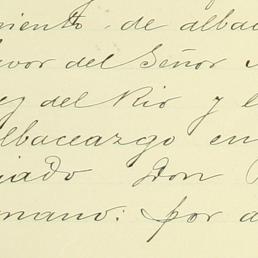 miento de albac
vor del Señor
ez del Rio y l
albaceazgo en
iado Don
mano: por a